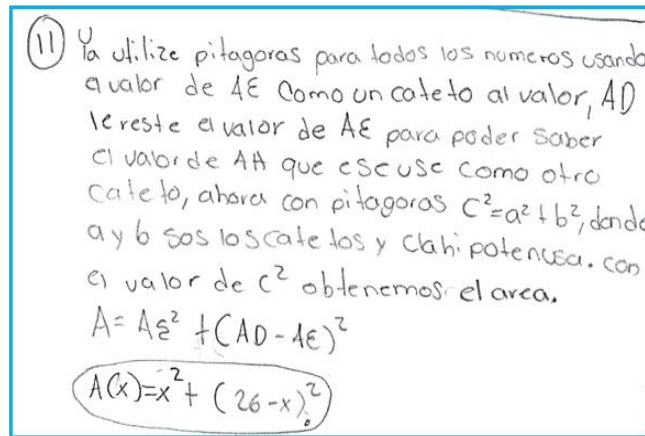 11) Ya utilize pitagoras para todos los numeros usando
el valor de AE Como un cateto al valor, AD
le reste el valor de AE para poder saber
el valor de AH que ese use como otro
cateto, ahora con pitagoras C²=a²+b², donde
a y b sos los catetos y c la hipotenusa. con
el valor de c² obtenemos el area.
A= AE² +(AD-AE)²
A(x)=x²+ (26-x)².